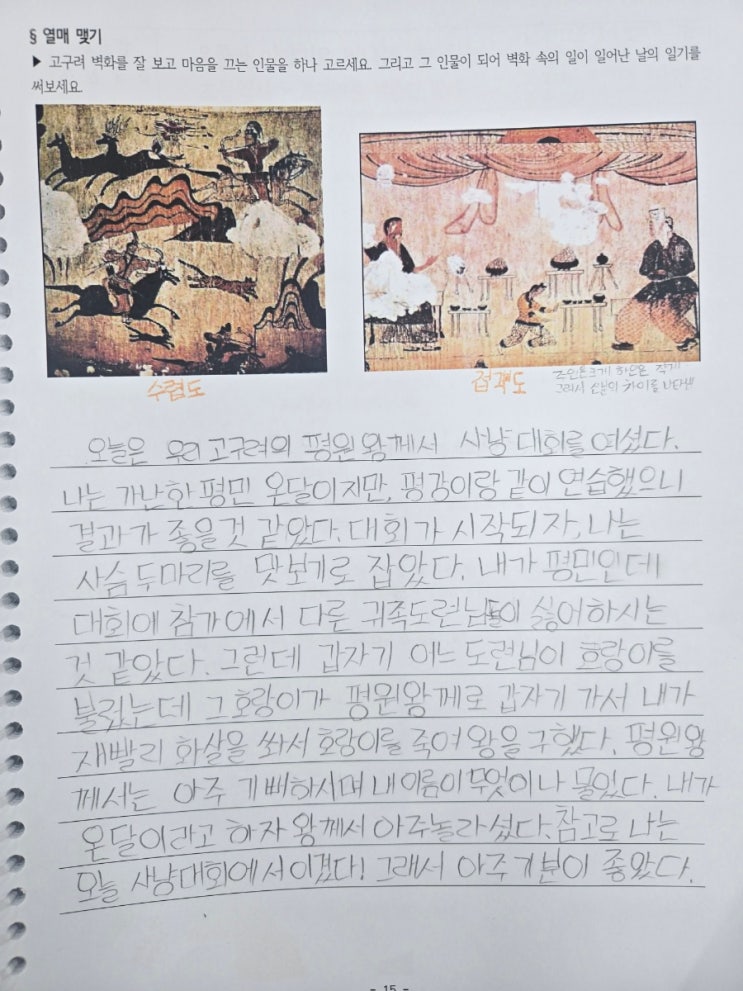 § 열매 맺기
▶ 고구려 벽화를 잘 보고 마음을 끄는 인물을 하나 고르세요. 그리고 그 인물이 되어 벽화 속의 일이 일어난 날의 일기를
써보세요.
수렵도
접객도
주인은크게 하인은 작게
그려서 신분의 차이를 나타냄
오늘은 우리 고구려의 평원왕께서 사냥 대회를 여셨다.
나는 가난한 평민 온달이지만, 평강이랑 같이 연습했으니
결과가 좋을것 같았다. 대회가 시작되자, 나는
사슴 두마리를 맛보기로 잡았다. 내가 평민인데
대회에 참가에서 다른 귀족도련님들이 싫어하시는
것 같았다. 그런데 갑자기 어느 도련님이 호랑이를
불렀는데 그호랑이가 평원왕께로 갑자기 가서 내가
재빨리 화살을 쏴서 호랑이를 죽여 왕을 구했다. 평원왕
께서는 아주 기뻐하시며 내이름이 무엇이냐 물었다. 내가
온달이라고 하자 왕께서 아주놀라셨다. 참고로 나는
오늘 사냥대회에서 이겼다! 그래서 아주기분이 좋았다.
- 15 -